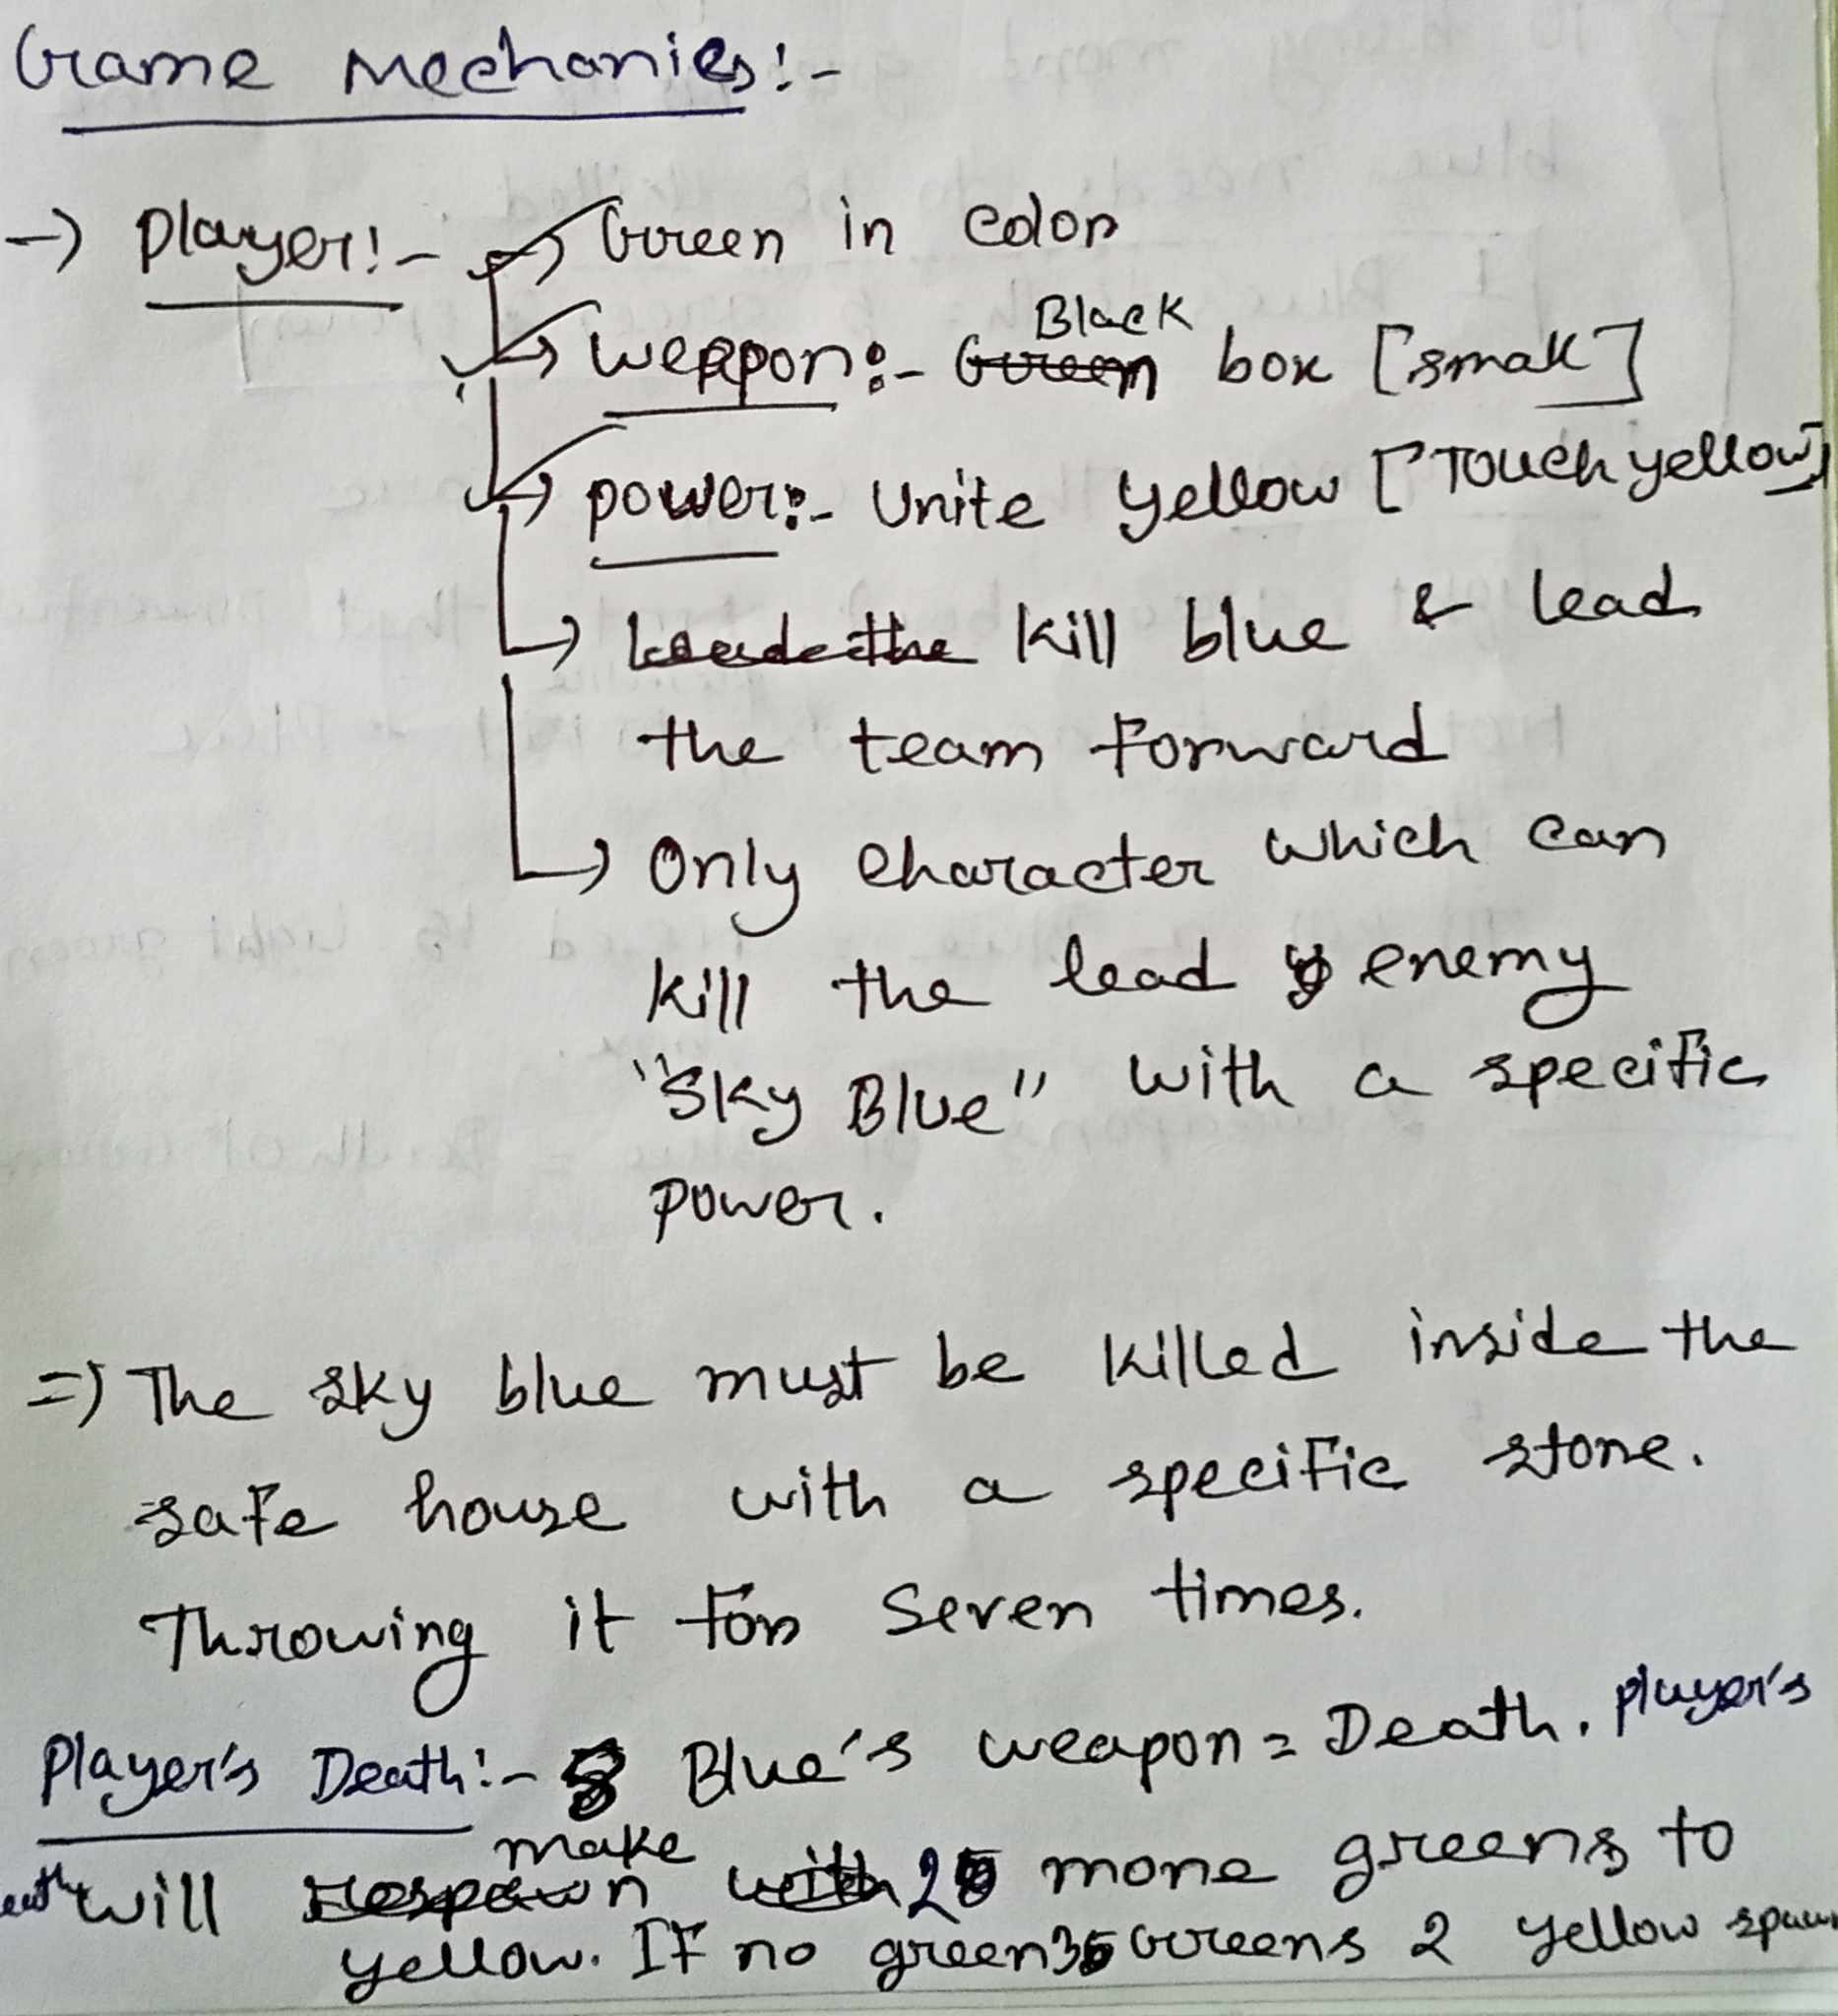 Game Mechanics:-
→ Player:- → Green in color
→ Weapon:- Black box [small]
→ Power:- Unite yellow [Touch yellow]
→ Kill blue & lead
the team forward
→ Only character which can
kill the lead enemy
"Sky Blue" with a specific
power.
⇒ The sky blue must be killed inside the
safe house with a specific stone.
Throwing it for seven times.
Player's Death:- Blue's weapon = Death. Player's
will make more greens to
yellow. If no green Greens 2 yellow